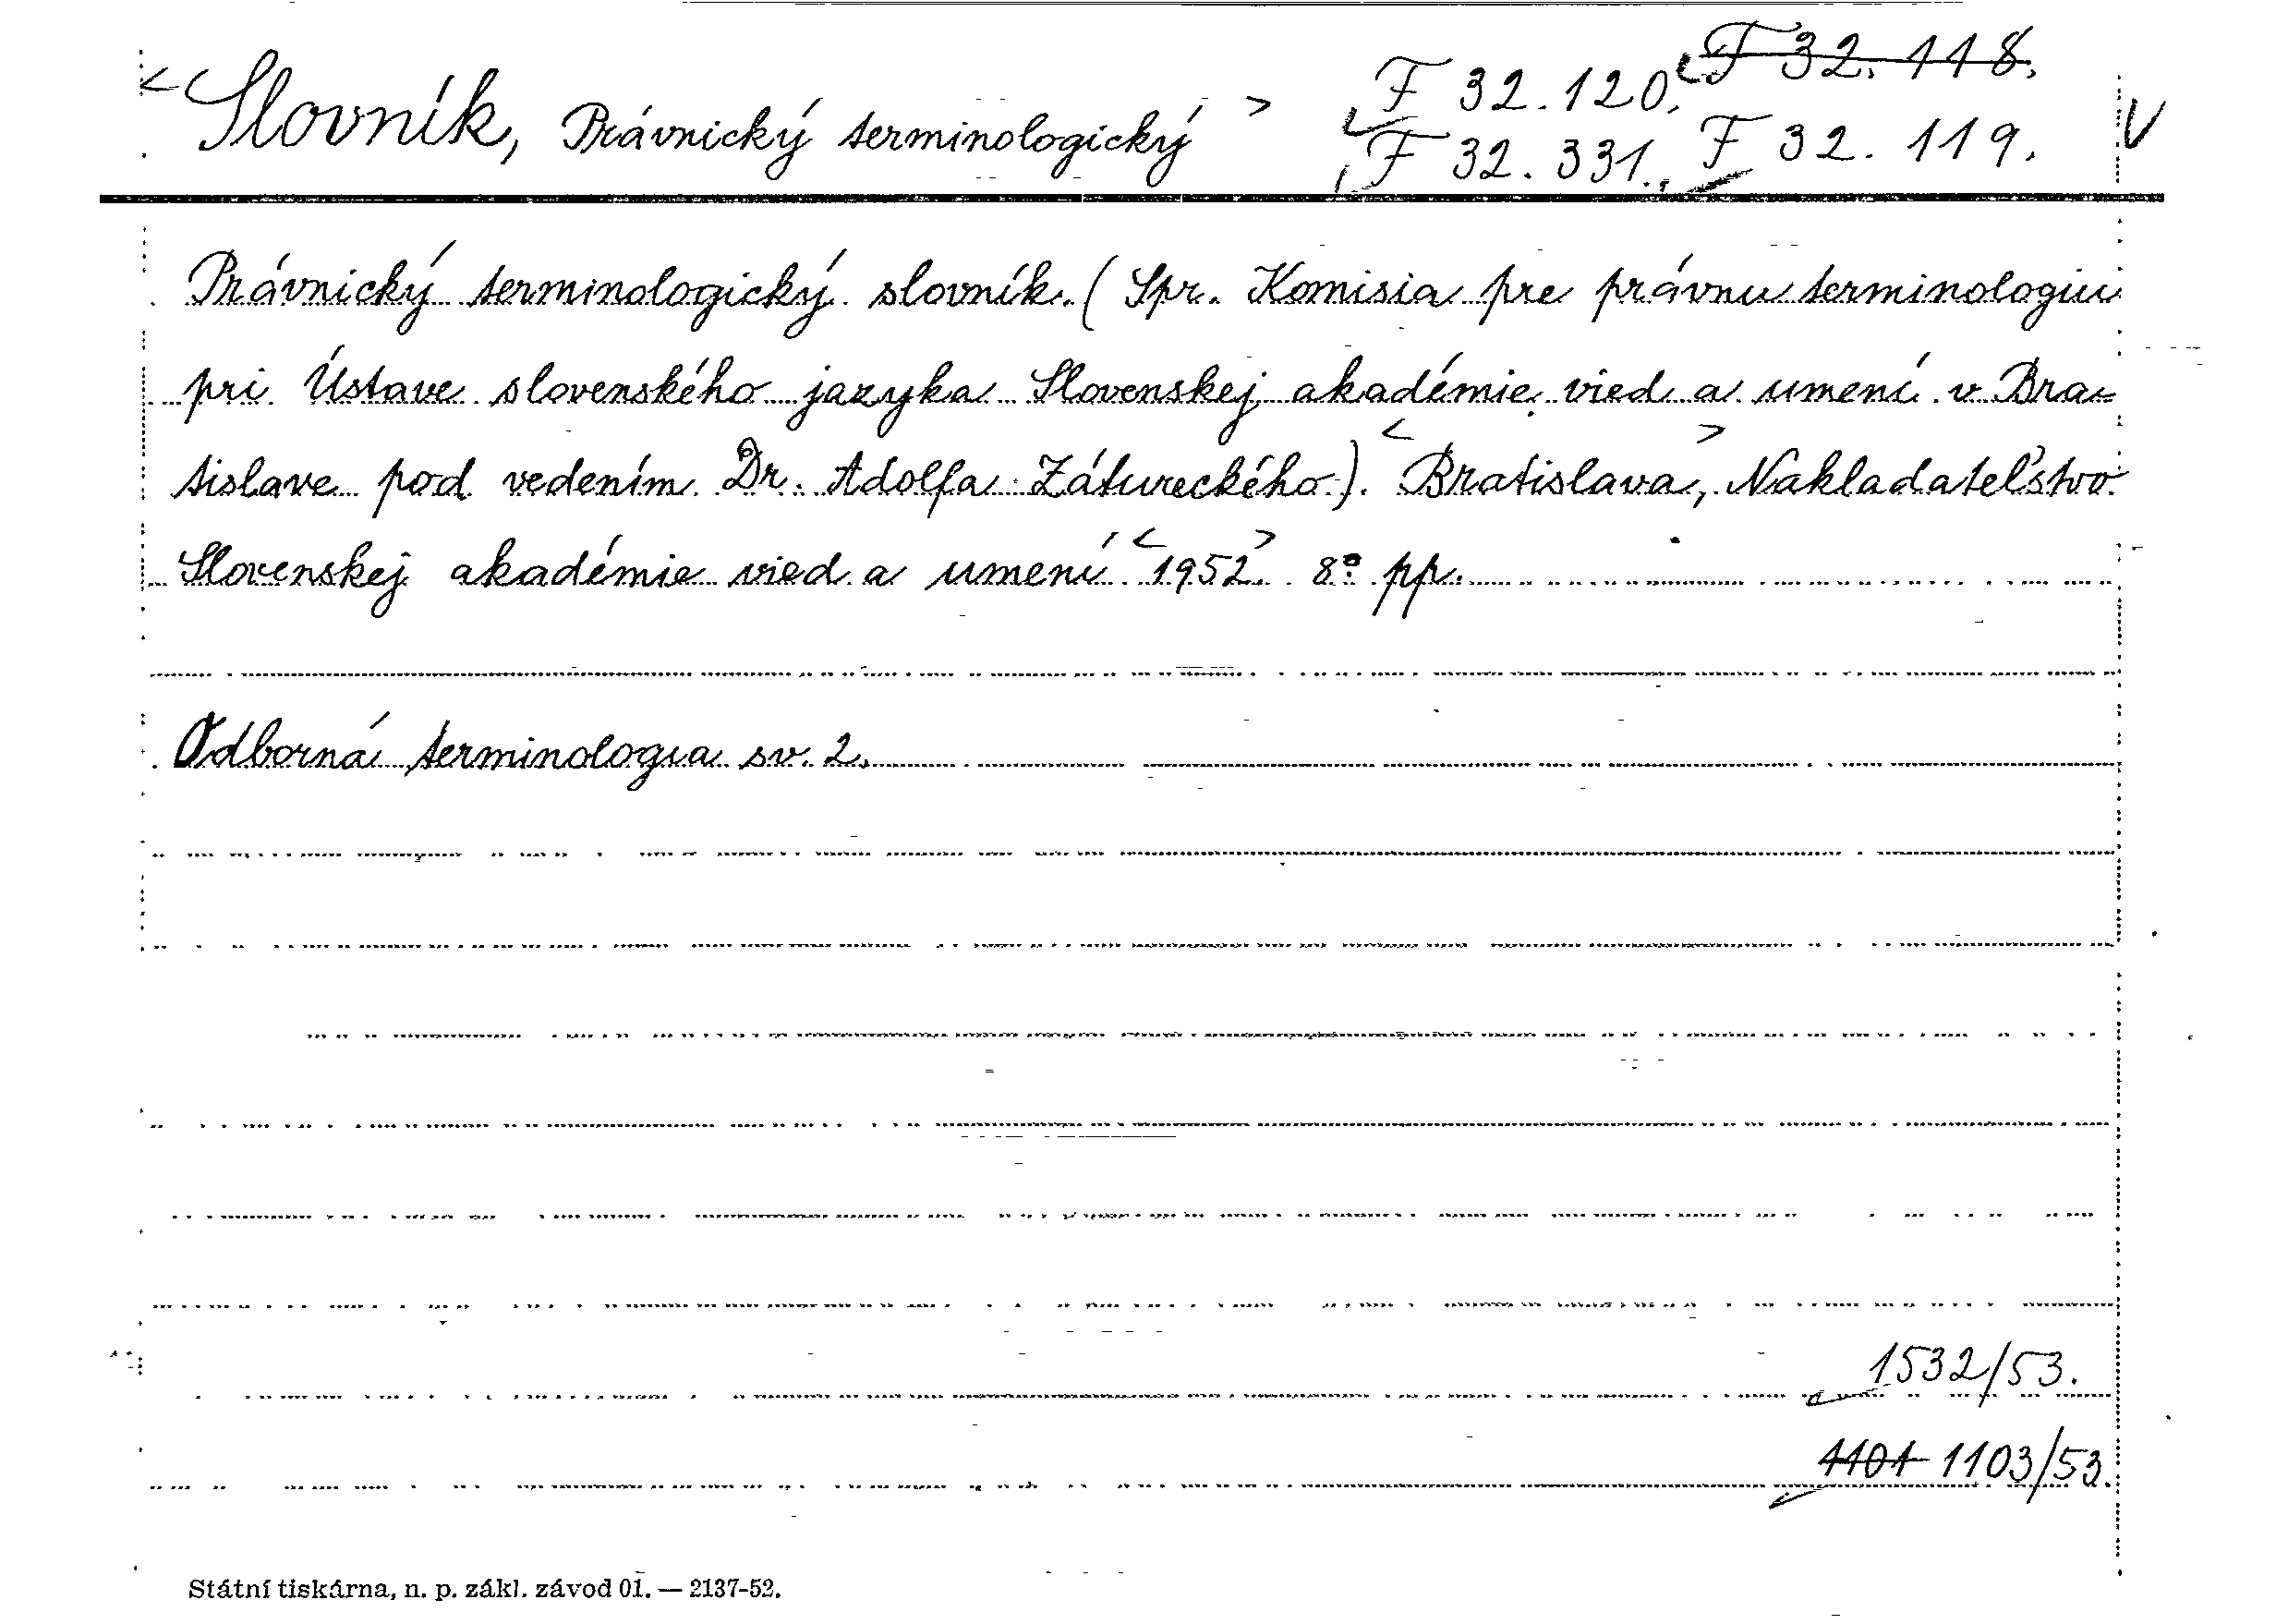 <Slovník, Právnický terminologický> F 32.120, F 32.118.
F 32.331., F 32.119. V
Právnický terminologický slovník. (Spr. Komisia pre právnu terminologiu
pri Ústave slovenského jazyka Slovenskej akadémie vied a umení v Bra-
tislave pod vedením Dr. Adolfa Zátureckého). <Bratislava,> Nakladateľstvo
Slovenskej akadémie vied a umení <1952>. 8° pp.
Odborná terminologia sv. 2.
1532/53.
1101 1103/53.
Státní tiskárna, n. p. zákl. závod 01. — 2137-52.